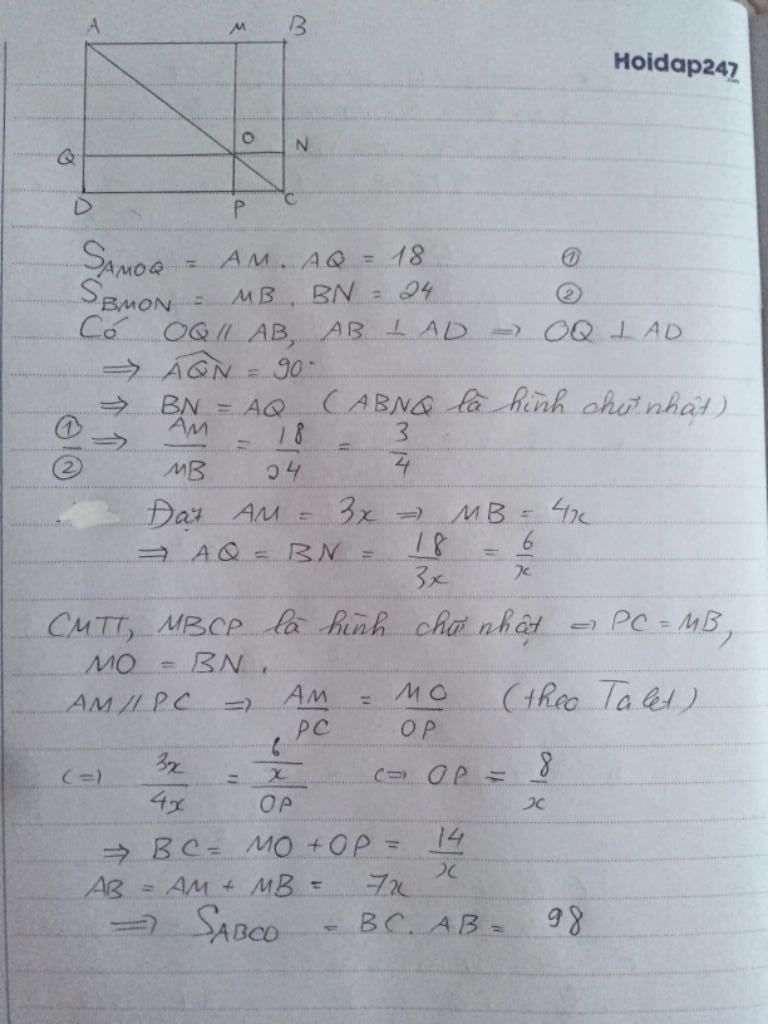 A M B
Hoidap247
Q O N
D P C
S_AMOQ = AM . AQ = 18 ①
S_BMON = MB . BN = 24 ②
Có OQ // AB, AB ⊥ AD => OQ ⊥ AD
=> AQN = 90°
=> BN = AQ (ABNQ là hình chữ nhật)
①/② => AM/MB = 18/24 = 3/4
Đạt AM = 3x => MB = 4x
=> AQ = BN = 18/3x = 6/x
CMTT, MBCP là hình chữ nhật => PC = MB,
MO = BN.
AM // PC => AM/PC = MO/OP (theo Talet)
(=) 3x/4x = (6/x)/OP (=> OP = 8/x
=> BC = MO + OP = 14/x
AB = AM + MB = 7x
=> S_ABCD = BC . AB = 98